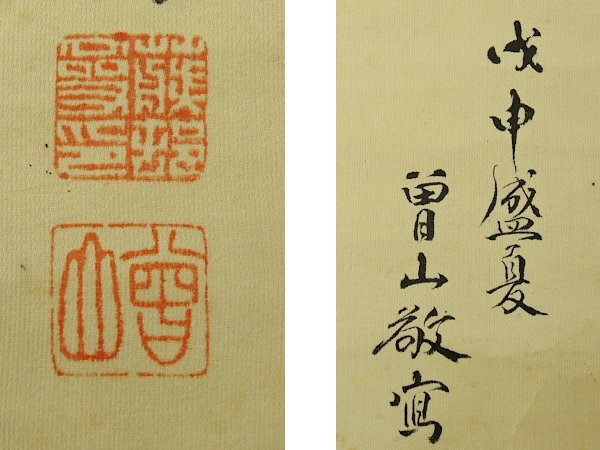 戊申盛夏
曽山敬寫
曽山